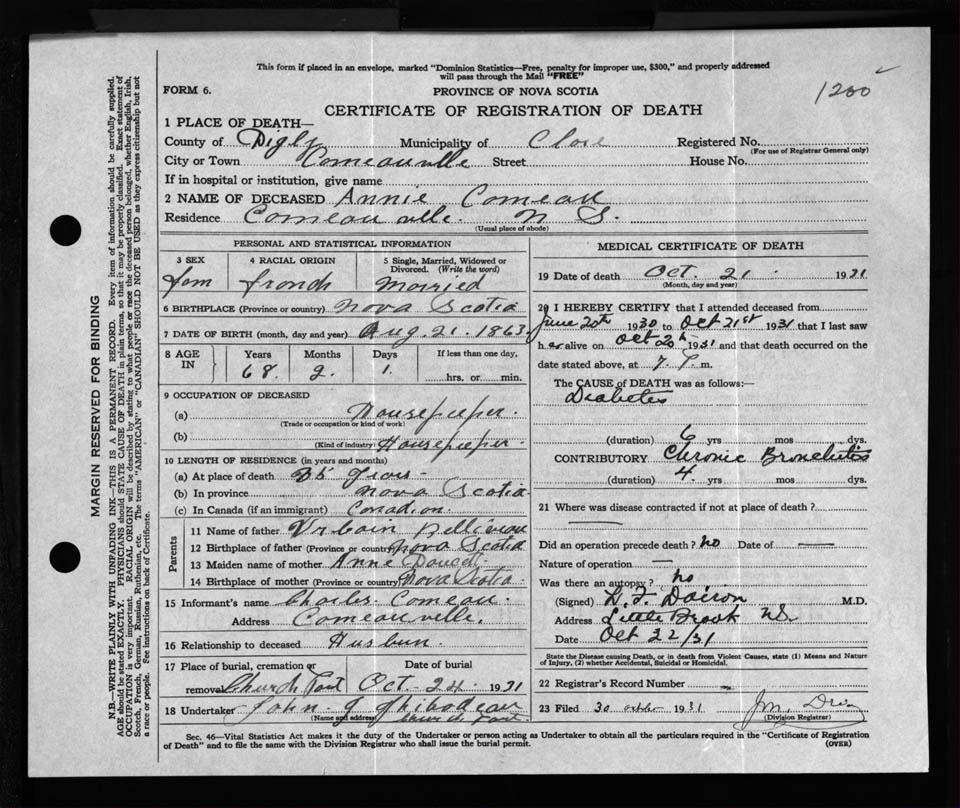 This form if placed in an envelope, marked "Dominion Statistics—Free, penalty for improper use, $300," and properly addressed
will pass through the Mail "FREE"
FORM 6.
PROVINCE OF NOVA SCOTIA
1200
CERTIFICATE OF REGISTRATION OF DEATH
1 PLACE OF DEATH—
County of Digby Municipality of Clare Registered No.
(For use of Registrar General only)
City or Town Comeauville Street House No.
If in hospital or institution, give name
2 NAME OF DECEASED Annie Comeau
Residence Comeauville. N S.
(Usual place of abode)
PERSONAL AND STATISTICAL INFORMATION
3 SEX 4 RACIAL ORIGIN 5 Single, Married, Widowed or Divorced. (Write the word)
Fem French Married
6 BIRTHPLACE (Province or country) Nova Scotia
7 DATE OF BIRTH (month, day and year) Aug. 21. 1863.
8 AGE IN Years Months Days If less than one day,
68. 2. 1. hrs. or min.
9 OCCUPATION OF DECEASED
(a) Housekeeper.
(Trade or occupation or kind of work)
(b) Housekeeper.
(Kind of industry)
10 LENGTH OF RESIDENCE (in years and months)
(a) At place of death 35 Years
(b) In province Nova Scotia
(c) In Canada (if an immigrant) Canadian.
Parents
11 Name of father Urbain Belliveau
12 Birthplace of father (Province or country) Nova Scotia
13 Maiden name of mother Anne Doucet
14 Birthplace of mother (Province or country) Nova Scotia.
15 Informant's name Charles Comeau.
Address Comeauville.
16 Relationship to deceased Husbun.
17 Place of burial, cremation or removal Date of burial
Church Point Oct. 24. 1931
18 Undertaker John J Thibodeau
(Name and address) Church Point
MEDICAL CERTIFICATE OF DEATH
19 Date of death Oct. 21. 1931
(Month, day and year)
20 I HEREBY CERTIFY that I attended deceased from
June 20th 1930 to Oct 21st 1931 that I last saw
her alive on Oct 20th 1931 and that death occurred on the
date stated above, at 7. P. m.
The CAUSE of DEATH was as follows:—
Diabetes
(duration) 6 yrs mos dys.
CONTRIBUTORY Chronic Bronchitis
(duration) 4. yrs mos dys.
21 Where was disease contracted if not at place of death?
Did an operation precede death? no Date of —
Nature of operation —
Was there an autopsy? no
(Signed) M.D.
Address Little Brook NS
Date Oct 22/31
State the Disease causing Death, or in death from Violent Causes, state (1) Means and Nature of Injury, (2) whether Accidental, Suicidal or Homicidal.
22 Registrar's Record Number
23 Filed 30 october 1931
(Division Registrar)
Sec. 46—Vital Statistics Act makes it the duty of the Undertaker or person acting as Undertaker to obtain all the particulars required in the "Certificate of Registration
of Death" and to file the same with the Division Registrar who shall issue the burial permit.
(OVER)
MARGIN RESERVED FOR BINDING
N.B.—WRITE PLAINLY WITH UNFADING INK—THIS IS A PERMANENT RECORD. Every item of information should be carefully supplied.
AGE should be stated EXACTLY. PHYSICIANS should STATE CAUSE OF DEATH in plain terms, so that it may be properly classified. Exact statement of
OCCUPATION is very important. RACIAL ORIGIN will be described by stating to what people or race the deceased person belonged, whether English, Irish,
Scotch, French, German, Russian, Ruthenian, etc. The terms "AMERICAN" or "CANADIAN" SHOULD NOT BE USED as they express citizenship but not
a race or people. See instructions on back of Certificate.